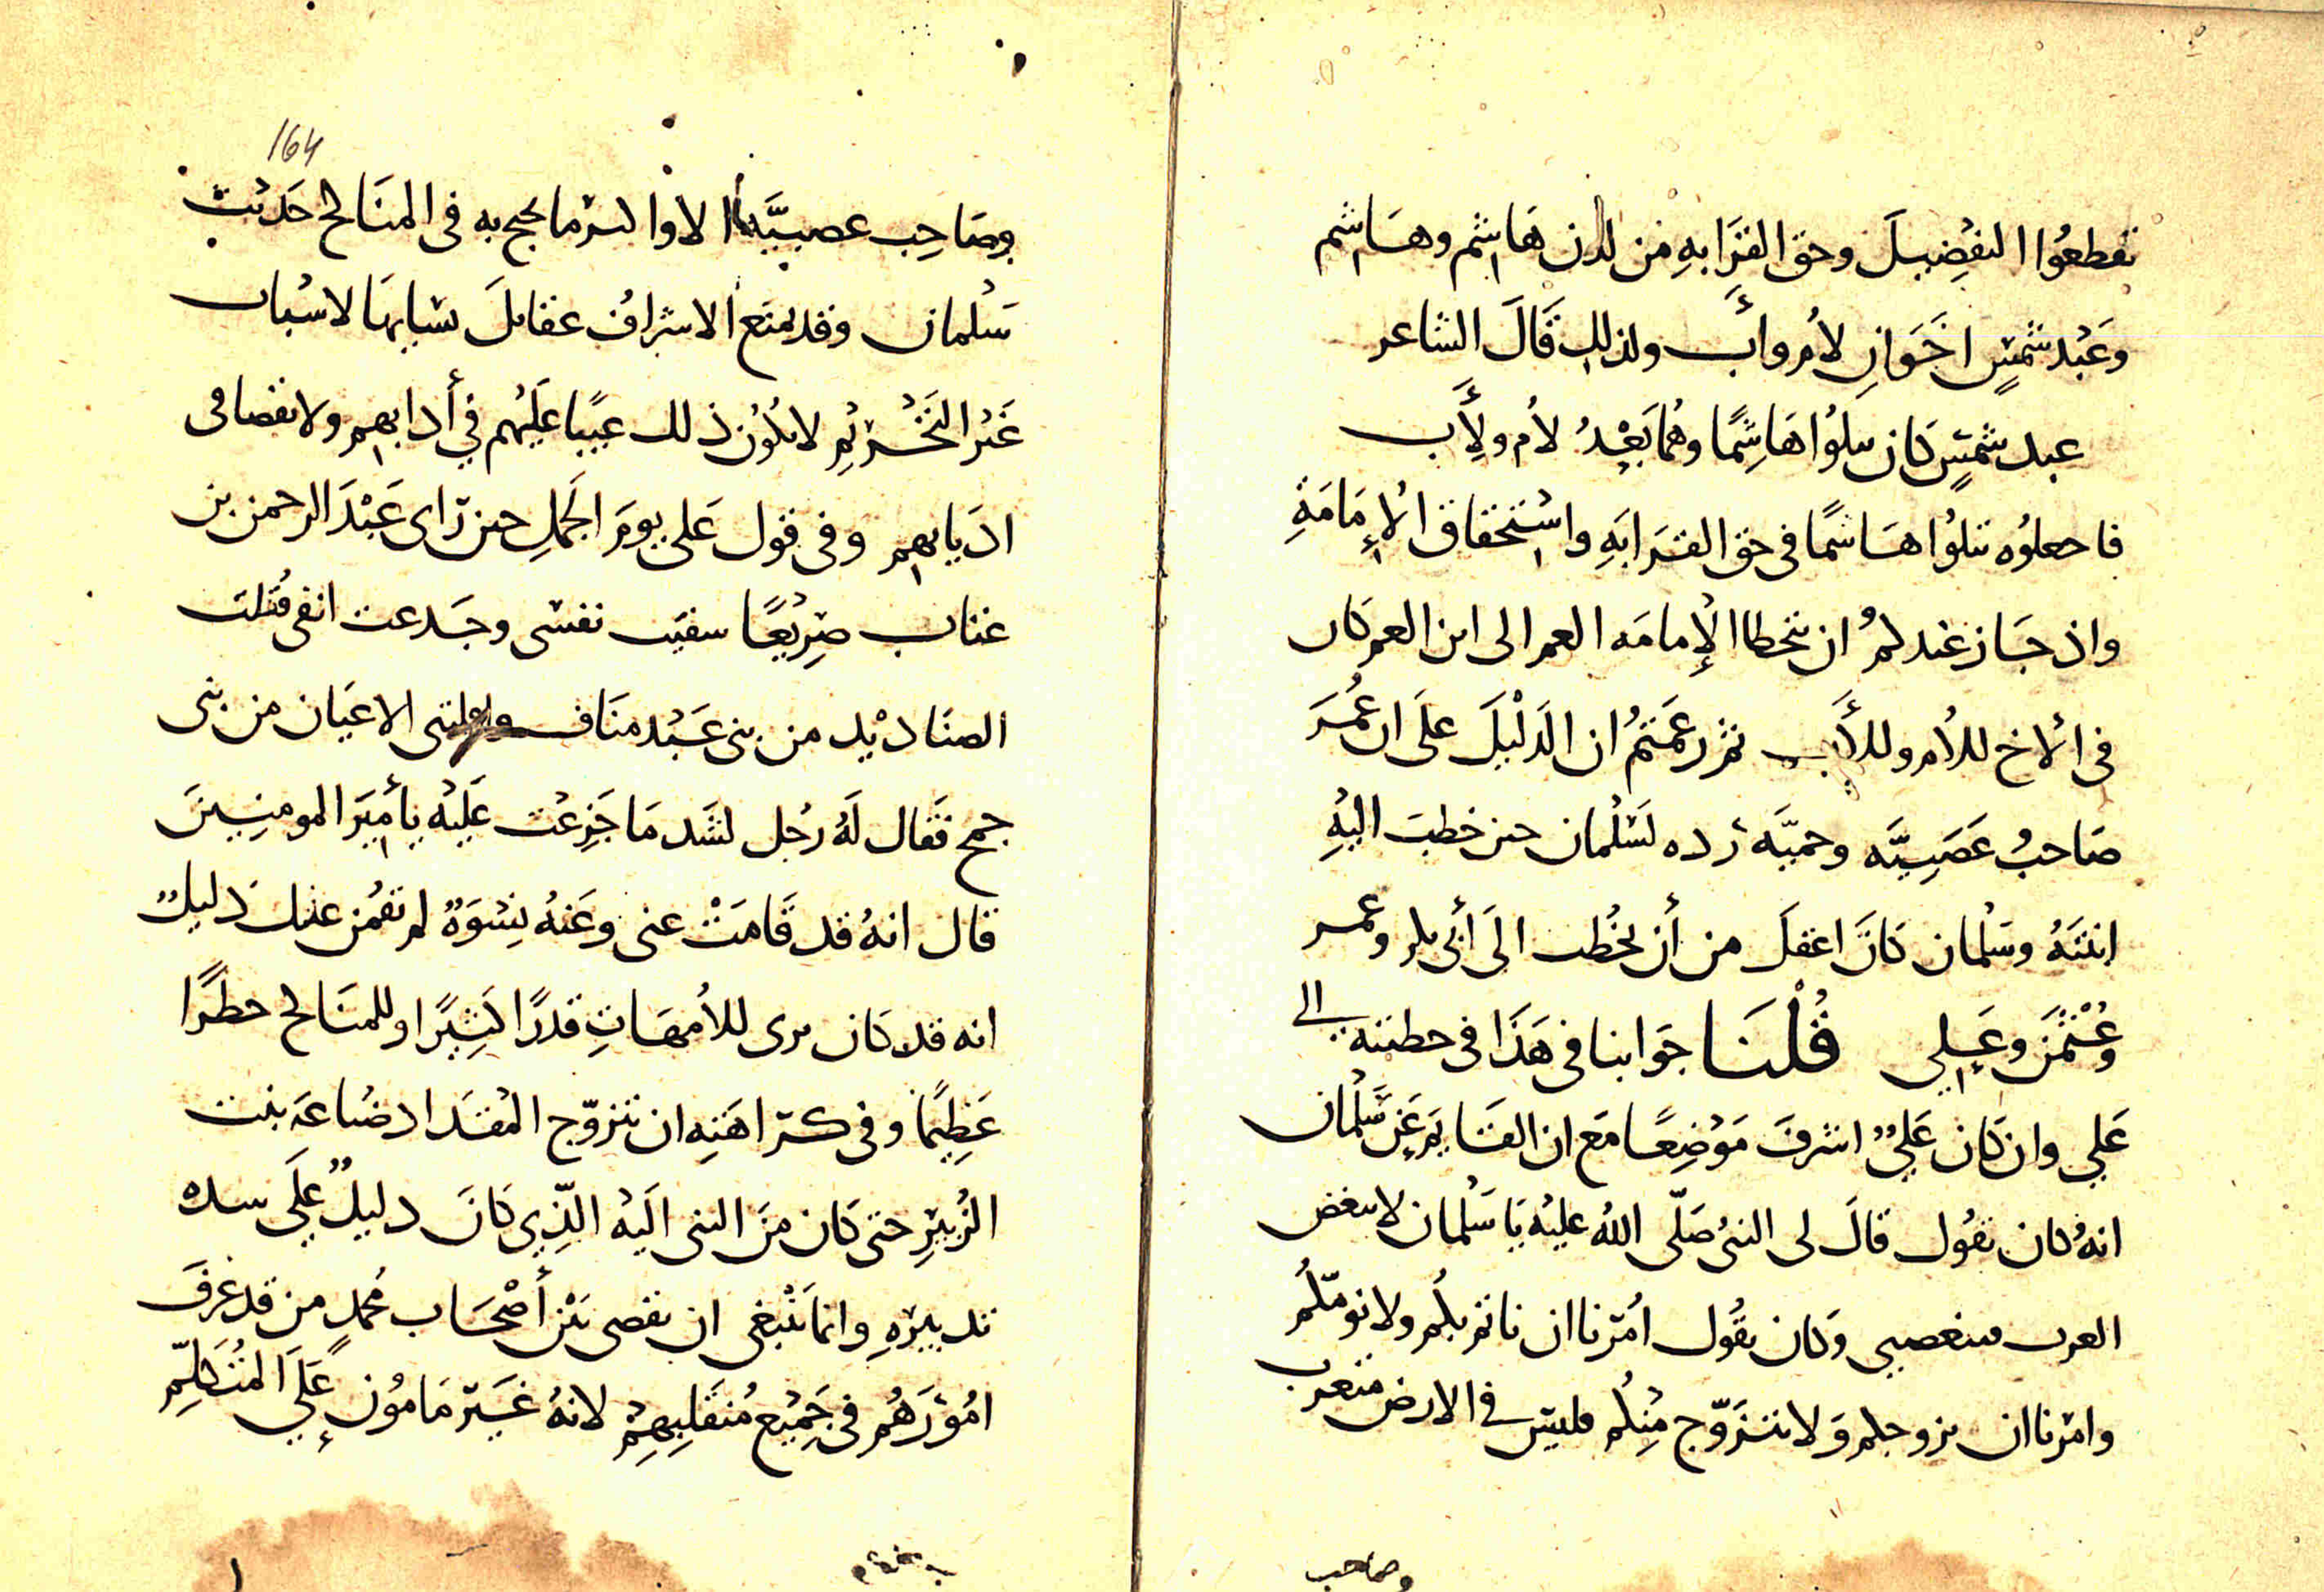 تقطعوا التفضيل وحق القرابه من لدن هاشم وهاشم
وعبد شمس اخوان لأم وأب ولذلك قال الشاعر
عبد شمس كان يتلوا هاشما وهما بعد لأم ولأب
فاجعلوه يتلوا هاشما في حق القرابه واستحقاق الإمامة
واذ جاز عندكم ان تتخطا الإمامه العم الى ابن العم كان
في الأخ للأم وللأب ثم زعمتم ان الدليل على ان عمر
صاحب عصبيه وحميه رده لسلمان حين خطب اليه
ابنته وسلمان كان اعقل من أن يخطب الى أبي بكر وعمر
وعثمن وعلي قلنا جوابنا في هذا في خطبته الى
علي وان كان علي اشرف موضعا مع ان القايم عن سلمان
انه كان يقول قال لى النبى صلى الله عليه يا سلمان لا تبغض
العرب فتبغضني وكان يقول امرنا ان ناتم بكم ولا نومكم
وامرنا ان نزوجكم ولا نتزوج منكم فليس في الارض متعرب
وصاحب
164
وصاحب عصبيه الا واكثر ما يحتج به في المناكح حديث
سلمان وقد يمنع الاشراف عقايل نسايها لاسباب
غير التحريم لا يكون ذلك عيبا عليهم في أدابهم ولا نقصا في
اديانهم وفي قول علي يوم الجمل حين راى عبد الرحمن بن
عتاب صريعا شفيت نفسى وجدعت انفى قتلت
الصناديد من بنى عبد مناف الاعيان من بنى
جمح فقال له رجل لشد ما جزعت عليه يا أمير المومنين
قال انه قد قامت عنى وعنه نسوة لم تقمن عنك دليل
انه قد كان يرى للأمهات قدرا كثيرا وللمناكح خطرا
عظيما وفي كراهته ان تتزوج المقداد ضباعه بنت
الزبير حتى كان من النبى اليه الذي كان دليل على
تدبيره وانما ينبغى ان يقضى بين أصحاب محمد من قد عرف
امورهم في جميع متقلبهم لانه غير مامون على المتكلم